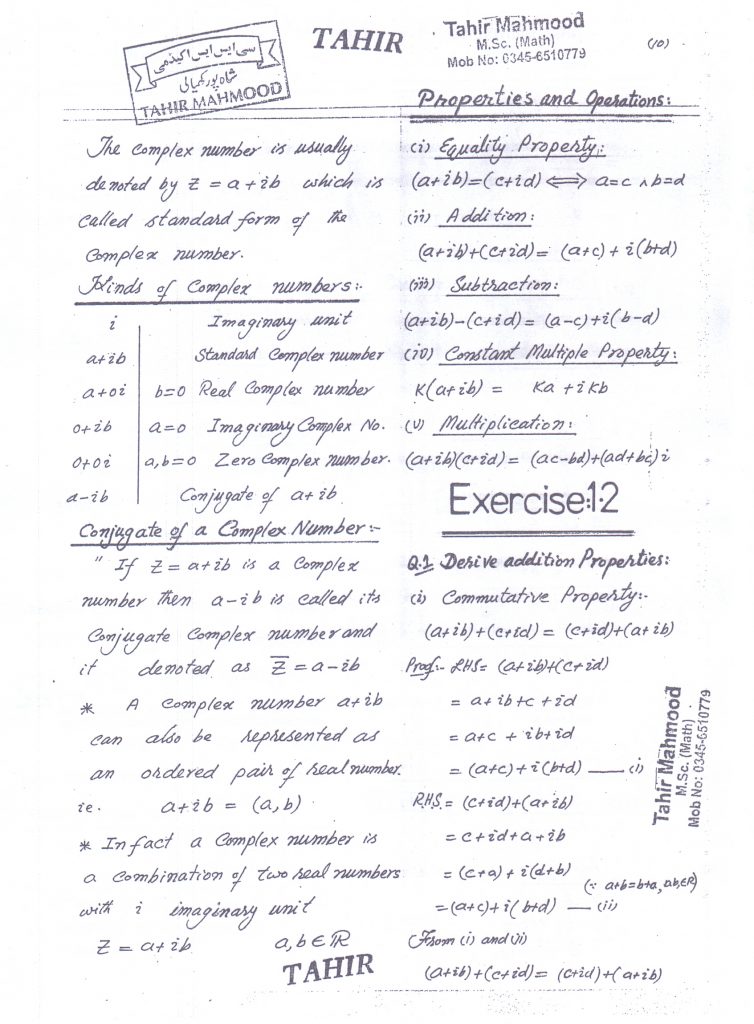 سی ایس ایس اکیڈمی
شاہ پور کھیالی
TAHIR MAHMOOD
TAHIR
Tahir Mahmood
M.Sc. (Math)
Mob No: 0345-6510779
(10)
The Complex number is usually
denoted by Z = a+ib which is
called standard form of the
Complex number.
Kinds of Complex numbers:-
i Imaginary unit
a+ib Standard Complex number
a+0i b=0 Real Complex number
0+ib a=0 Imaginary Complex No.
0+0i a,b=0 Zero Complex number.
a-ib Conjugate of a+ib
Conjugate of a Complex Number:-
" If Z = a+ib is a Complex
number then a-ib is called its
Conjugate Complex number and
it denoted as Z̅ = a-ib
* A Complex number a+ib
can also be represented as
an ordered pair of real number.
ie. a+ib = (a,b)
* In fact a Complex number is
a combination of two real numbers
with i imaginary unit
Z = a+ib a,b ∈ ℝ
TAHIR
Properties and Operations:
(i) Equality Property:
(a+ib)=(c+id) ⟺ a=c ∧ b=d
(ii) Addition:
(a+ib)+(c+id) = (a+c) + i(b+d)
(iii) Subtraction:
(a+ib)-(c+id) = (a-c)+i(b-d)
(iv) Constant Multiple Property:
K(a+ib) = Ka + iKb
(v) Multiplication:
(a+ib)(c+id) = (ac-bd)+(ad+bc)i
Exercise:1.2
Q.1 Derive addition Properties:
(i) Commutative Property:-
(a+ib)+(c+id) = (c+id)+(a+ib)
Proof:- LHS= (a+ib)+(c+id)
= a+ib+c+id
= a+c + ib+id
= (a+c)+i(b+d) —— (i)
R.H.S.= (c+id)+(a+ib)
= c+id+a+ib
= (c+a) + i(d+b)
(∵ a+b=b+a, a,b∈R)
=(a+c)+i(b+d) — (ii)
From (i) and (ii)
(a+ib)+(c+id)= (c+id)+(a+ib)
Tahir Mahmood
M.Sc. (Math)
Mob No: 0345-6510779